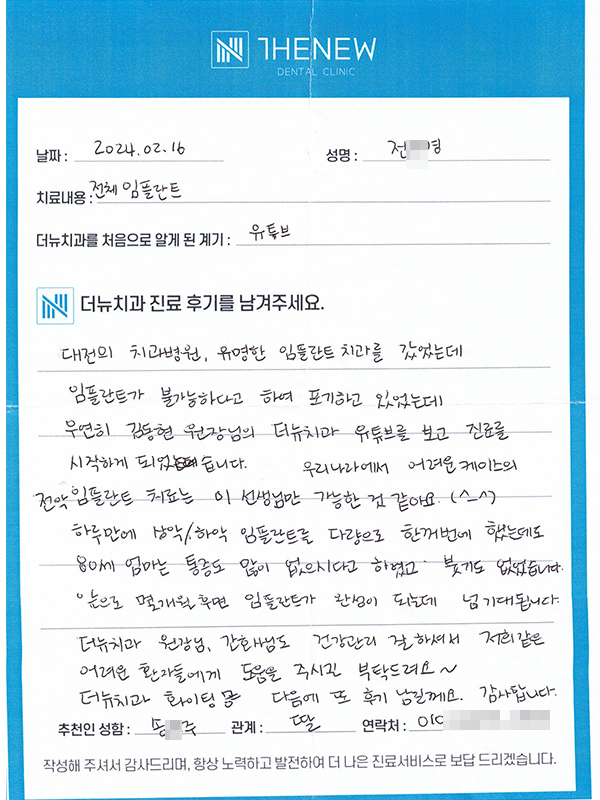 THENEW
DENTAL CLINIC
날짜 : 2024.02.16 성명 : 전 영
치료내용 : 전체 임플란트
더뉴치과를 처음으로 알게 된 계기 : 유튜브
더뉴치과 진료 후기를 남겨주세요.
대전의 치과병원, 유명한 임플란트 치과를 갔었는데
임플란트가 불가능하다고 하여 포기하고 있었는데
우연히 김동현 원장님의 더뉴치과 유튜브를 보고 진료를
시작하게 되었습니다. 우리나라에서 어려운 케이스의
전악 임플란트 치료는 이 선생님만 가능한 것 같아요. (^-^)
하루만에 상악/하악 임플란트를 다량으로 한꺼번에 했는데도
80세 엄마는 통증도 많이 없으시다고 하였고 붓기도 없었습니다.
앞으로 몇개월 후면 임플란트가 완성이 되는데 넘 기대됩니다.
더뉴치과 원장님, 간호사님도 건강관리 잘 하셔서 저희같은
어려운 환자들에게 도움을 주시길 부탁드려요~
더뉴치과 화이팅 다음에 또 후기 남길께요. 감사합니다.
추천인 성함 : 송 주 관계 : 딸 연락처 : 010
작성해 주셔서 감사드리며, 항상 노력하고 발전하여 더 나은 진료서비스로 보답 드리겠습니다.